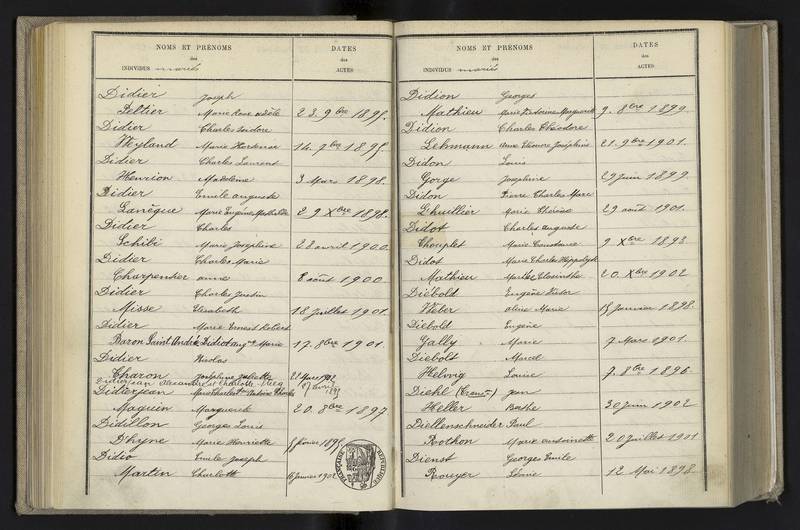 NOMS ET PRÉNOMS
des
INDIVIDUS mariés
DATES
des
ACTES
Didier Joseph
Peltier Marie Rose Adèle 23. 9bre 1895.
Didier Charles Isidore
Weyland Marie Hortense 14. 9bre 1895.
Didier Charles Laurent
Henrion Madeleine 3 Mars 1898.
Didier Emile Auguste
Lanèque Marie Eugénie Mathilde 29 Xbre 1898.
Didier Charles
Schibi Marie Joséphine 28 avril 1900.
Didier Charles Marie
Charpentier Anne 8 août 1900
Didier Charles Justin
Misse Elisabeth 18 juillet 1901.
Didier Marie Ernest Robert
Baron Saint André Didiot Augte Marie 17. 8bre 1901.
Didier Nicolas
Charon Joséphine Juliette 21 Mars 1902
Didierjean Alexandre et Charlotte
Didierjean Antoine Charles
Maquin Marguerite 20. 8bre 1897
Didillon Georges Louis
D'hyne Marie Henriette février
Didio Emile Joseph
Martin Charlotte 6 Janvier 1902
NOMS ET PRÉNOMS
des
INDIVIDUS mariés
DATES
des
ACTES
Didion Georges
Mathieu Marie Victorine Marguerite 9. 8bre 1899.
Didion Charles Théodore
Lehmann Anne Eléonore Joséphine 21. 9bre 1901.
Didon Louis
Gorge Joséphine 29 juin 1899
Didon Pierre Charles Marie
Lhuillier Marie Thérèse 29 août 1901.
Didot Charles Auguste
Chouplet Marie Constance 9 Xbre 1893.
Didot Marie Charles Hippolyte
Mathieu Closinthe 20. Xbre 1902
Diebold Eugène Victor
Weber Aline Marie 15 Janvier 1898.
Diebold Eugène
Gally Marie 7 Mars 1901.
Diebolt Marcel
Helwig Louise 7. 8bre 1896.
Diehl Jean
Heller Berthe 30 juin 1902
Diellenschneider Paul
Rothon Marie Antoinette 20 juillet 1901
Dienst Georges Emile
Rouyer Léonie 12 Mai 1898.